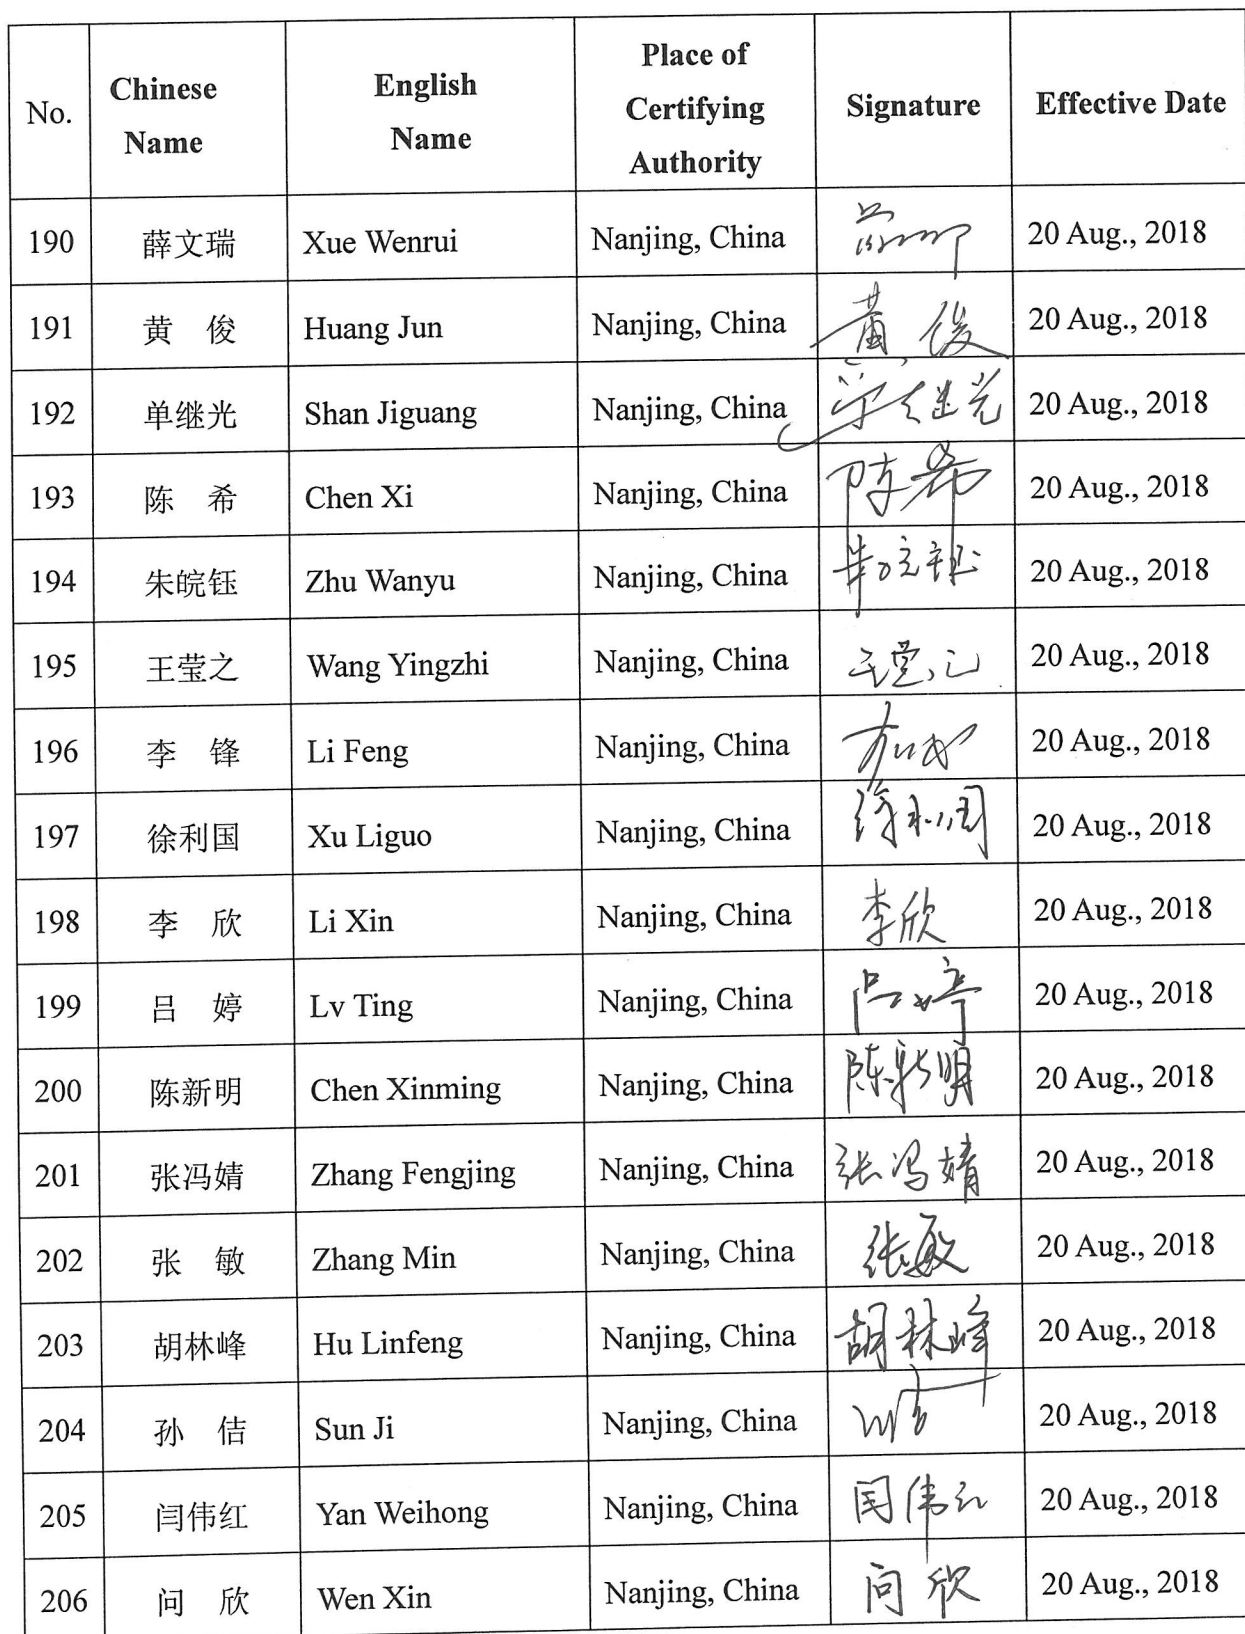 No. Chinese Name English Name Place of Certifying Authority Signature Effective Date
190 薛文瑞 Xue Wenrui Nanjing, China 20 Aug., 2018
191 黄 俊 Huang Jun Nanjing, China 黄俊 20 Aug., 2018
192 单继光 Shan Jiguang Nanjing, China 单继光 20 Aug., 2018
193 陈 希 Chen Xi Nanjing, China 陈希 20 Aug., 2018
194 朱皖钰 Zhu Wanyu Nanjing, China 朱皖钰 20 Aug., 2018
195 王莹之 Wang Yingzhi Nanjing, China 王莹之 20 Aug., 2018
196 李 锋 Li Feng Nanjing, China 20 Aug., 2018
197 徐利国 Xu Liguo Nanjing, China 徐利国 20 Aug., 2018
198 李 欣 Li Xin Nanjing, China 李欣 20 Aug., 2018
199 吕 婷 Lv Ting Nanjing, China 吕婷 20 Aug., 2018
200 陈新明 Chen Xinming Nanjing, China 陈新明 20 Aug., 2018
201 张冯婧 Zhang Fengjing Nanjing, China 张冯婧 20 Aug., 2018
202 张 敏 Zhang Min Nanjing, China 张敏 20 Aug., 2018
203 胡林峰 Hu Linfeng Nanjing, China 胡林峰 20 Aug., 2018
204 孙 佶 Sun Ji Nanjing, China 20 Aug., 2018
205 闫伟红 Yan Weihong Nanjing, China 闫伟红 20 Aug., 2018
206 问 欣 Wen Xin Nanjing, China 问欣 20 Aug., 2018